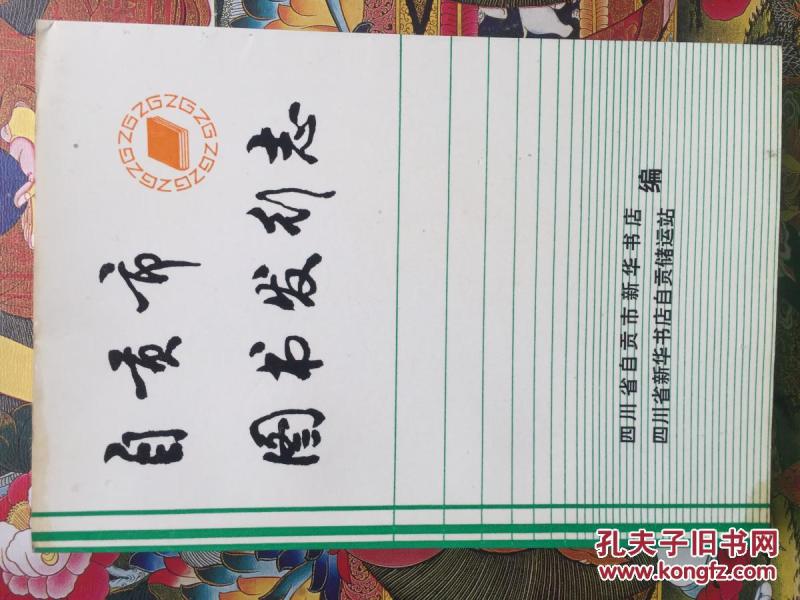 ZGZGZGZGZGZGZGZG
自贡市
图书发行志
四川省自贡市新华书店
四川省新华书店自贡储运站
编
孔子旧书网
www.kongfz.com